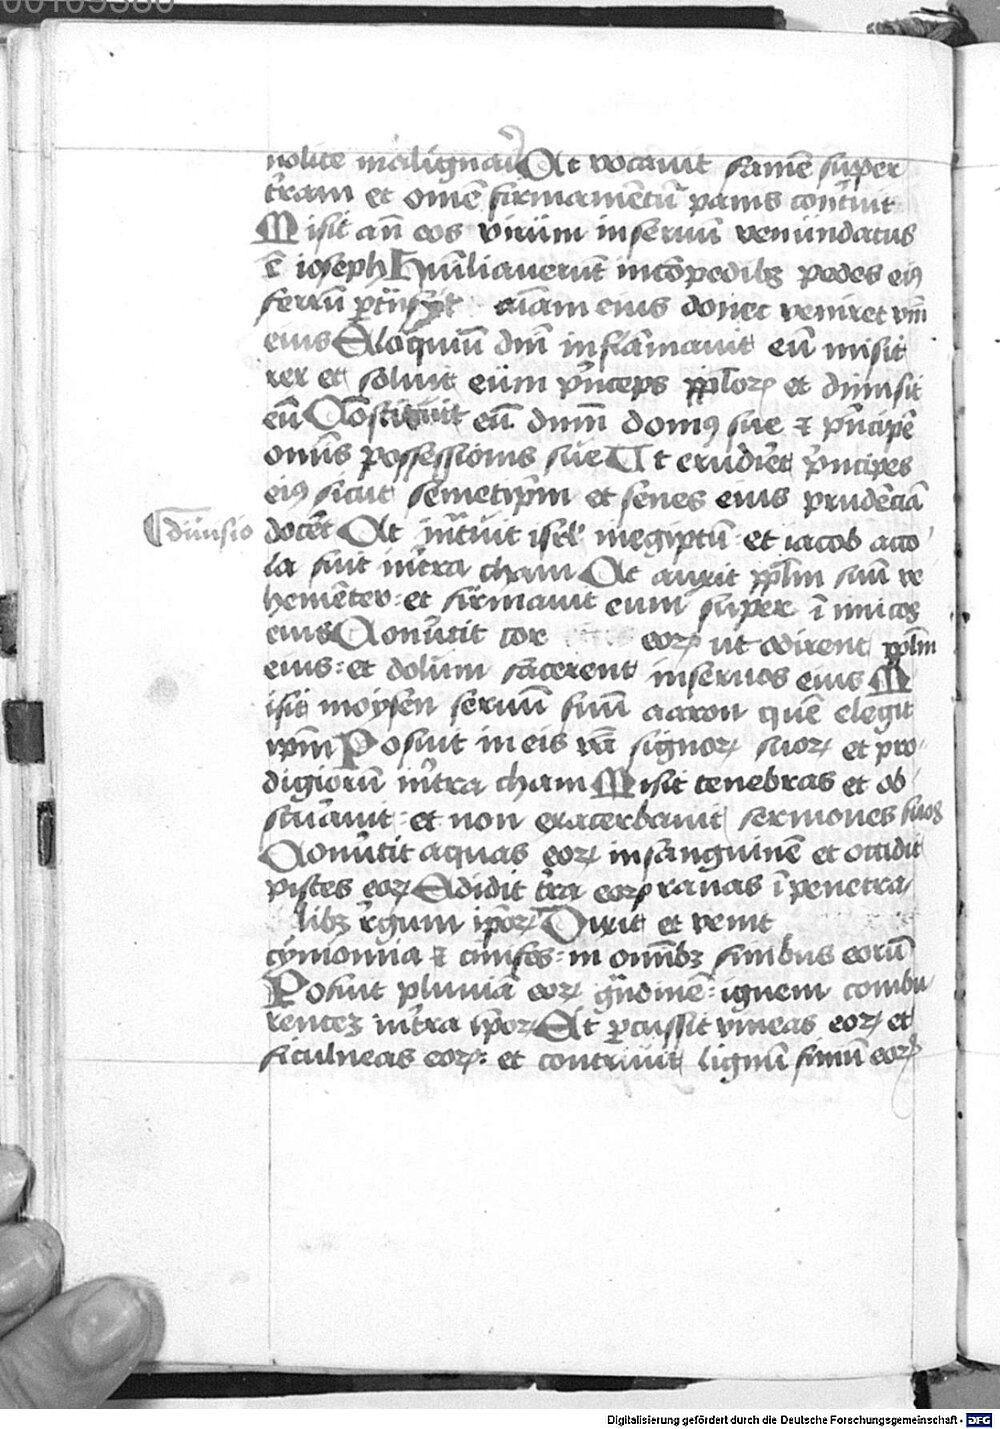 nolite maligna⁊ Et vocavit famē super
t'ram et omē firmamētū panis cont'vit
Misit añ eos virum in servū venundatus
ē ioseph Humiliaverūt in cōpedibꝫ pedes eiꝰ
ferrū ꝑtrāsijt aīam eius donec veniret vm̄
eius Eloquiū dnī inflāmavit eū misit
rex et solvit eum p'nceps pplorꝝ et dimisit
eū Constituit eū dnm̄ domꝰ sue ⁊ p'ncipē
omnis possessionis sue Ut erudiret p'ncipes
eiꝰ sicut semetip̄m et senes eius prudēciā
divisio
docēt Et int'vit isrl' in egiptū et iacob acco
la fuit in t'ra cham Et auxit pplm̄ suū ve
hemēter : et firmavit eum super inimicos
eius Convertit cor eorꝝ ut odirent pplm̄
eius : et dolum facerent in servos eius M
isit moysen servū suū aaron quē elegit
ip̄m Posuit in eis v'ba signorꝝ suorꝝ et pro
digiorū in t'ra cham Misit tenebras et ob
scuravit : et non exacerbavit sermones suos
Convertit aquas eorꝝ in sanguinē et occidit
pisces eorꝝ Edidit t'ra eorꝝ ranas ī penetra
libꝫ r'gum ip̄orꝝ Dixit et venit
cynomia ⁊ cinifes : in omībꝫ finibus eorū
Posuit pluviā eorꝝ g'ndinē : ignem combu
rentē in t'ra ip̄orꝝ Et ꝑcussit vineas eorꝝ et
ficulneas eorꝝ : et contrivit lignū finiū eorꝝ
Digitalisierung gefördert durch die Deutsche Forschungsgemeinschaft - DFG